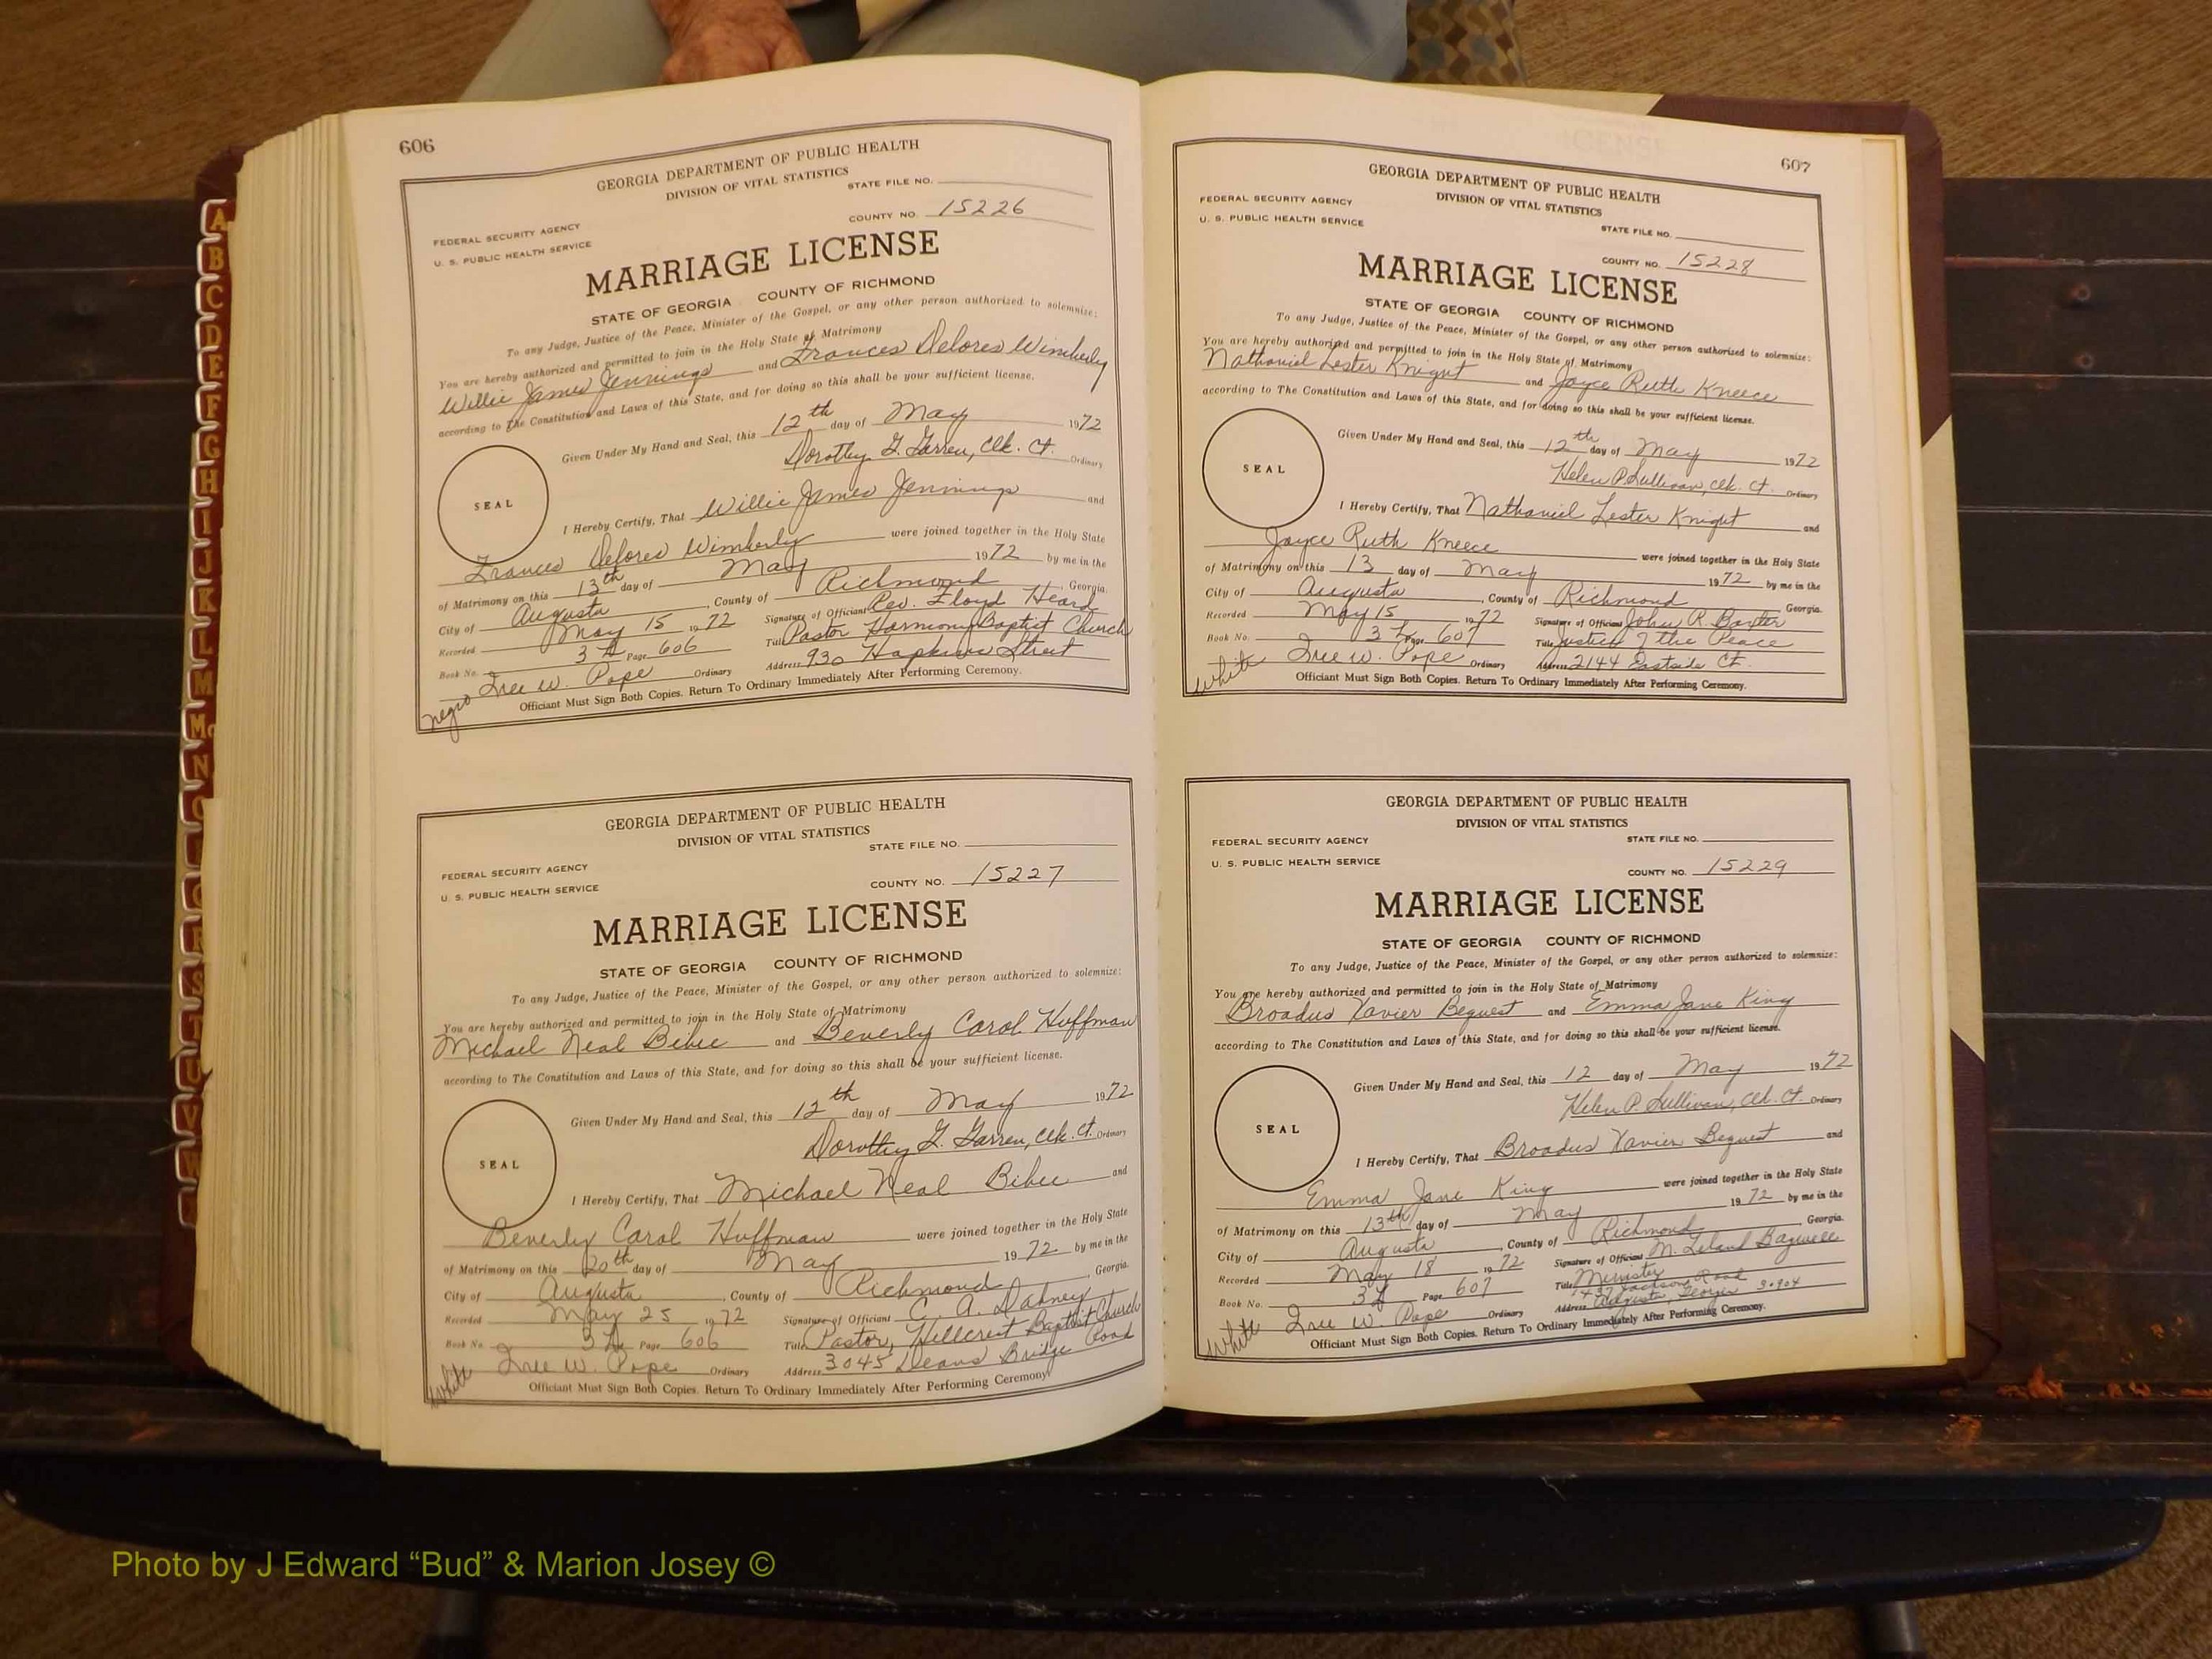 606
GEORGIA DEPARTMENT OF PUBLIC HEALTH
DIVISION OF VITAL STATISTICS
STATE FILE NO.
COUNTY NO. 15226
FEDERAL SECURITY AGENCY
U. S. PUBLIC HEALTH SERVICE
MARRIAGE LICENSE
STATE OF GEORGIA COUNTY OF RICHMOND
To any Judge, Justice of the Peace, Minister of the Gospel, or any other person authorized to solemnize:
You are hereby authorized and permitted to join in the Holy State of Matrimony
Willie James Jennings and Frances Delores Wimberly
according to The Constitution and Laws of this State, and for doing so this shall be your sufficient license.
Given Under My Hand and Seal, this 12th day of May 1972
Dorothy G. Garren, Clk. Ct. Ordinary
SEAL
I Hereby Certify, That Willie James Jennings and
Frances Delores Wimberly were joined together in the Holy State
of Matrimony on this 13th day of May 1972 by me in the
City of Augusta, County of Richmond, Georgia.
Recorded May 15 1972 Signature of Officiant Rev. Floyd Heard
Book No. 3 Page 606 Title Pastor Harmony Baptist Church
W. Pope Ordinary Address 930 Hopkins Street
Officiant Must Sign Both Copies. Return To Ordinary Immediately After Performing Ceremony.
negro
GEORGIA DEPARTMENT OF PUBLIC HEALTH
DIVISION OF VITAL STATISTICS
STATE FILE NO.
FEDERAL SECURITY AGENCY
U. S. PUBLIC HEALTH SERVICE
COUNTY NO. 15227
MARRIAGE LICENSE
STATE OF GEORGIA COUNTY OF RICHMOND
To any Judge, Justice of the Peace, Minister of the Gospel, or any other person authorized to solemnize:
You are hereby authorized and permitted to join in the Holy State of Matrimony
Michael Neal Bibee and Beverly Carol Huffman
according to The Constitution and Laws of this State, and for doing so this shall be your sufficient license.
Given Under My Hand and Seal, this 12th day of May 1972
Dorothy G. Garren, Clk. Ct. Ordinary
SEAL
I Hereby Certify, That Michael Neal Bibee and
Beverly Carol Huffman were joined together in the Holy State
of Matrimony on this 20th day of May 1972 by me in the
City of Augusta, County of Richmond, Georgia.
Recorded May 25 1972 Signature of Officiant C. A. Dabney
Book No. 3 Page 606 Title Pastor, Hillcrest Baptist Church
W. Pope Ordinary Address 3045 Deans Bridge Road
Officiant Must Sign Both Copies. Return To Ordinary Immediately After Performing Ceremony.
White
607
GEORGIA DEPARTMENT OF PUBLIC HEALTH
DIVISION OF VITAL STATISTICS
FEDERAL SECURITY AGENCY
U. S. PUBLIC HEALTH SERVICE
STATE FILE NO.
COUNTY NO. 15228
MARRIAGE LICENSE
STATE OF GEORGIA COUNTY OF RICHMOND
To any Judge, Justice of the Peace, Minister of the Gospel, or any other person authorized to solemnize:
You are hereby authorized and permitted to join in the Holy State of Matrimony
Nathaniel Lester Knight and Joyce Ruth Kneece
according to The Constitution and Laws of this State, and for doing so this shall be your sufficient license.
Given Under My Hand and Seal, this 12th day of May 1972
Helen P. Sullivan, Clk. Ct. Ordinary
SEAL
I Hereby Certify, That Nathaniel Lester Knight and
Joyce Ruth Kneece were joined together in the Holy State
of Matrimony on this 13 day of May 1972 by me in the
City of Augusta, County of Richmond, Georgia.
Recorded May 15 1972 Signature of Officiant John R. Baxter
Book No. 3 Page 607 Title Justice of the Peace
W. Pope Ordinary Address 2144 Eastside Ct.
Officiant Must Sign Both Copies. Return To Ordinary Immediately After Performing Ceremony.
White
GEORGIA DEPARTMENT OF PUBLIC HEALTH
DIVISION OF VITAL STATISTICS
FEDERAL SECURITY AGENCY
U. S. PUBLIC HEALTH SERVICE
STATE FILE NO.
COUNTY NO. 15229
MARRIAGE LICENSE
STATE OF GEORGIA COUNTY OF RICHMOND
To any Judge, Justice of the Peace, Minister of the Gospel, or any other person authorized to solemnize:
You are hereby authorized and permitted to join in the Holy State of Matrimony
Broadus Xavier Bequest and Emma Jane King
according to The Constitution and Laws of this State, and for doing so this shall be your sufficient license.
Given Under My Hand and Seal, this 12 day of May 1972
Helen P. Sullivan, Clk. Ct. Ordinary
SEAL
I Hereby Certify, That Broadus Xavier Bequest and
Emma Jane King were joined together in the Holy State
of Matrimony on this 13th day of May 1972 by me in the
City of Augusta, County of Richmond, Georgia.
Recorded May 18 1972 Signature of Officiant M. Leland Bagwell
Book No. 3 Page 607 Title Minister
Road
W. Pope Ordinary Address Augusta, Georgia 30904
Officiant Must Sign Both Copies. Return To Ordinary Immediately After Performing Ceremony.
White
A
B
C
D
E
F
G
H
I
J
K
L
M
Mc
N
O
Q
R
S
T
U
V
W
Photo by J Edward “Bud” & Marion Josey ©